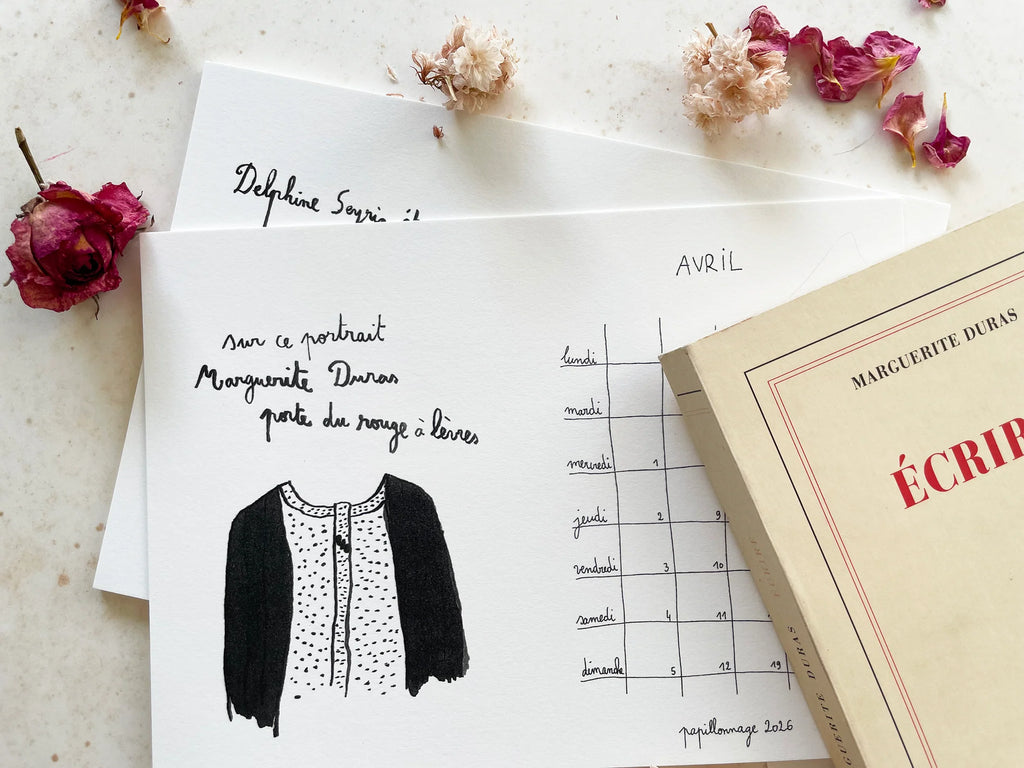 Delphine Seyrig
sur ce portrait
Marguerite Duras
porte du rouge à lèvres
AVRIL
lundi
mardi
mercredi 1
jeudi 2 9
vendredi 3 10
samedi 4 11
dimanche 5 12 19
papillonnage 2026
MARGUERITE DURAS
ÉCRIR
MARGUERITE DURAS ÉCRIRE